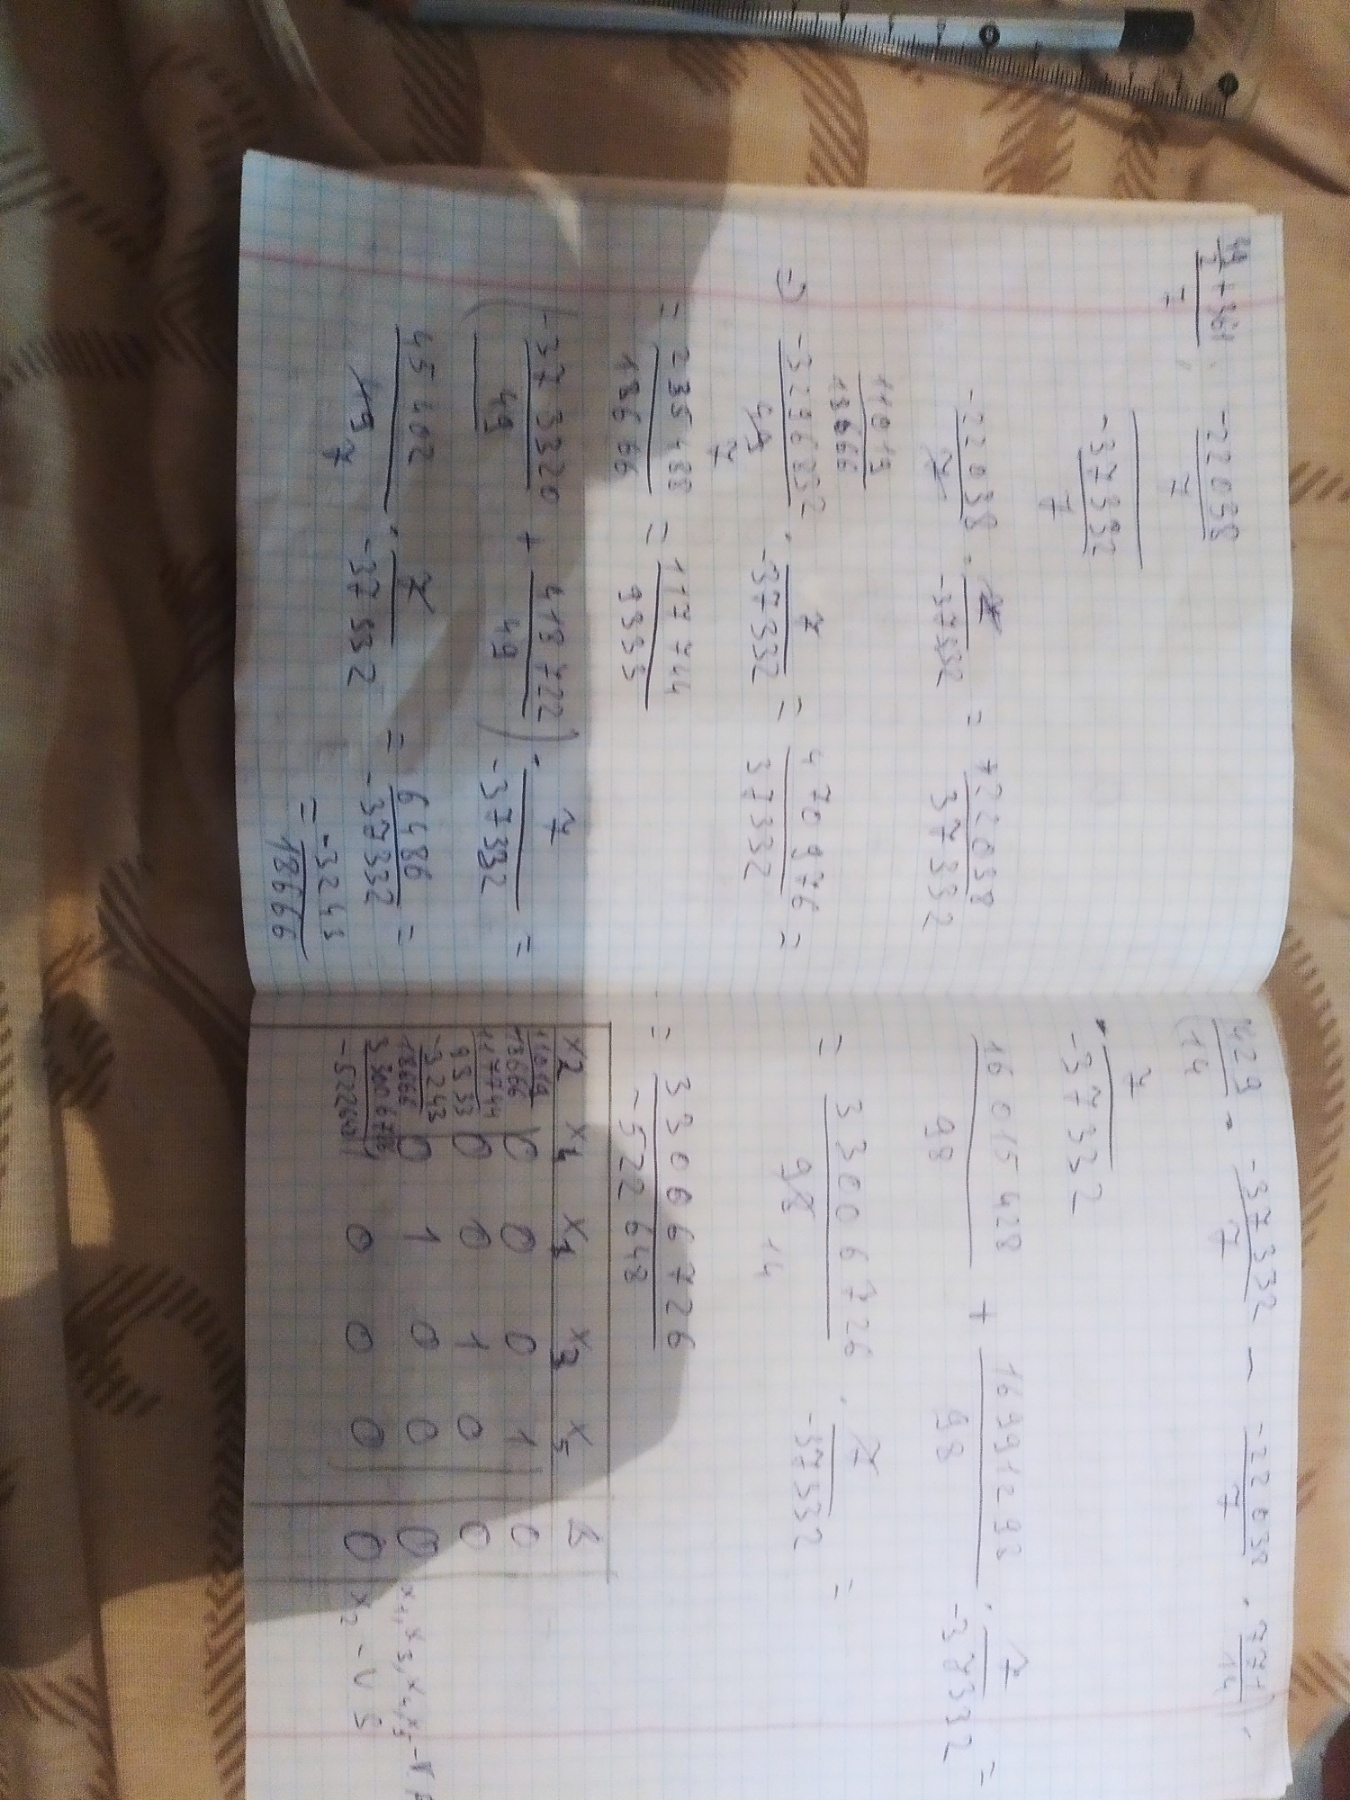 49/2 + 361 / 7 , -22038/7
-37332/7
-22038/7 · 7/-37332 = +22038/37332
11019/18666
=> -3296832/49 · 7/-37332 = 470976/37332 =
7
= 235488/18666 = 117744/9333
(-373320/49 + 418722/49) · 7/-37332 =
45402/49 · 7/-37332 = 6486/-37332 =
7
= -3243/18666
(429/14 · -37332/7 - -22038/7 · 771/14) ·
· 7/-37332
16015428/98 + 16991298/98 · 7/-37332 =
= 33006726/98 · 7/-37332 =
14
= 33006726/-522648
x2 x4 x1 x3 x5 B
11019/18666 0 0 0 1 0
117744/9333 0 0 1 0 0
-3243/18666 0 1 0 0 0 x1, x3, x4, x5 -
33006726/-522648 1 0 0 0 0 x2 -